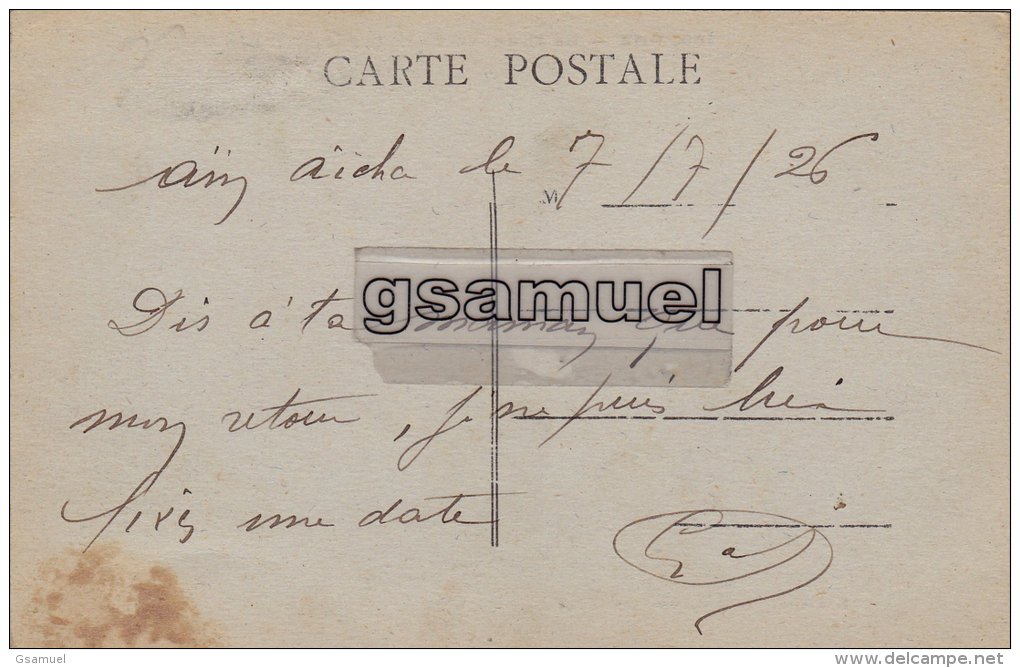 CARTE POSTALE
Aïn Aïcha le 7/7/26
M
gsamuel
Dis à ta maman que pour
mon retour, je ne puis bien
fixer une date
Gsamuel
delcampe.net